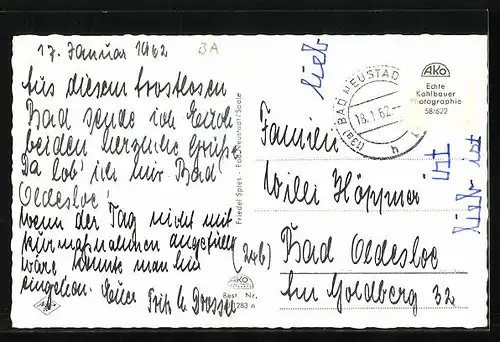 17. Januar 1962
BA
Aus diesem trostlosen
Bad sende ich Euch
beiden herzliche Grüße.
Da lob' ich mir Bad
Oldesloe!
Wenn der Tag nicht mit
Kurmaßnahmen angefüllt
wäre könnte man hier
eingehen. Euer Fritz
Friedel Spies - Bad Neustadt/Saale
AKO
Best. Nr.
283 n
(13a) BAD NEUSTADT
18.1.62
h
AKO
Echte
Kohlbauer
Photographie
58/622
lieb
Familie
Willi Höppner
(24b)
Bad Oldesloe
Am Goldberg 32